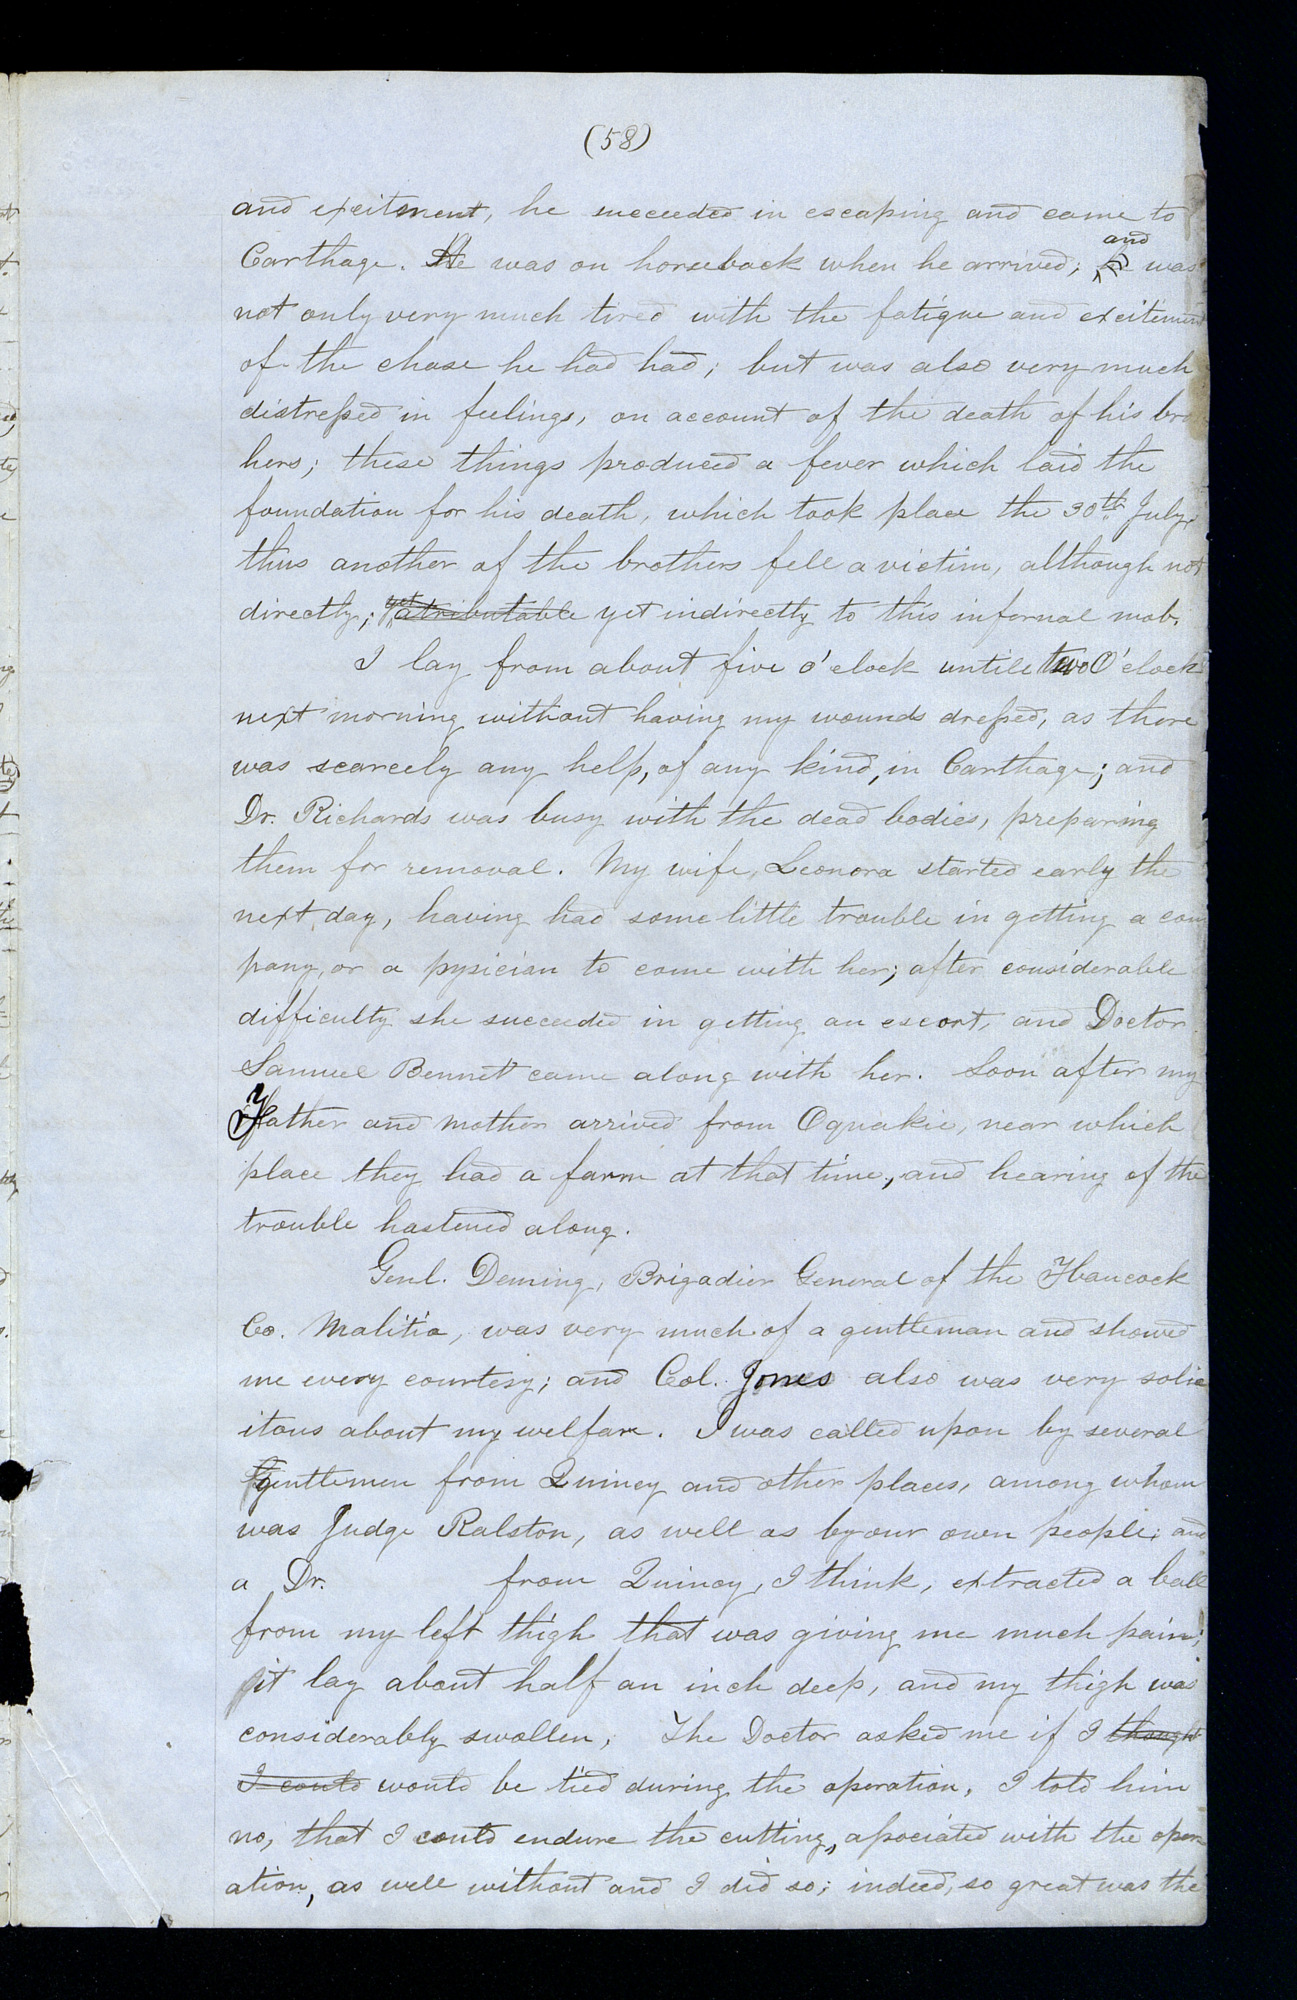 (58)
and excitment, he succeeded in escaping and came to
Carthage. He was on horseback when he arrived; and was
not only very much tired with the fatigue and excitement
of the chase he had had; but was also very much
distressed in feelings, on account of the death of his bro
hers; these things produced a fever which laid the
foundation for his death, which took place the 30th July.
thus another of the brothers fell a victim, although not
directly; yet atributable yet indirectly to this infernal mob.
I lay from about five o'clock untill two O'clock
next morning without having my wounds dressed, as there
was scarcely any help, of any kind, in Carthage; and
Dr. Richards was busy with the dead bodies, preparing
them for removal. My wife, Leonora started early the
next day, having had some little trouble in getting a com
pany, or a pysician to come with her; after considerable
difficulty she succeeded in getting an escort, and Doctor
Samuel Bennet came along with her. Soon after my
Father and mother arrived from Oquakie, near which
place they had a farm at that time, and hearing of the
trouble hastened along.
Genl. Deming, Brigadier General of the Hancock
Co. Malitia, was very much of a gentleman and showed
me every courtesy; and Col. Jones also was very solic
itous about my welfare. I was called upon by several
gentlemen from Quincy and other places, among whom
was Judge Ralston, as well as by our own people; and
a Dr. from Quincy, I think, extracted a ball
from my left thigh that was giving me much pain;
it lay about half an inch deep, and my thigh was
considerably swollen; The Doctor asked me if I thought
I could would be tied during the operation, I told him
no, that I could endure the cutting, associated with the oper
ation, as well without and I did so; indeed, so great was the